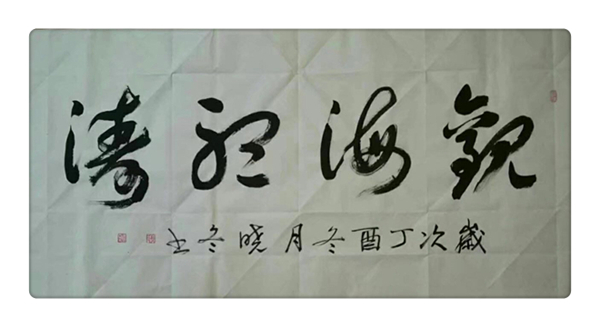 觀海聽濤
歲次丁酉冬月曉冬书